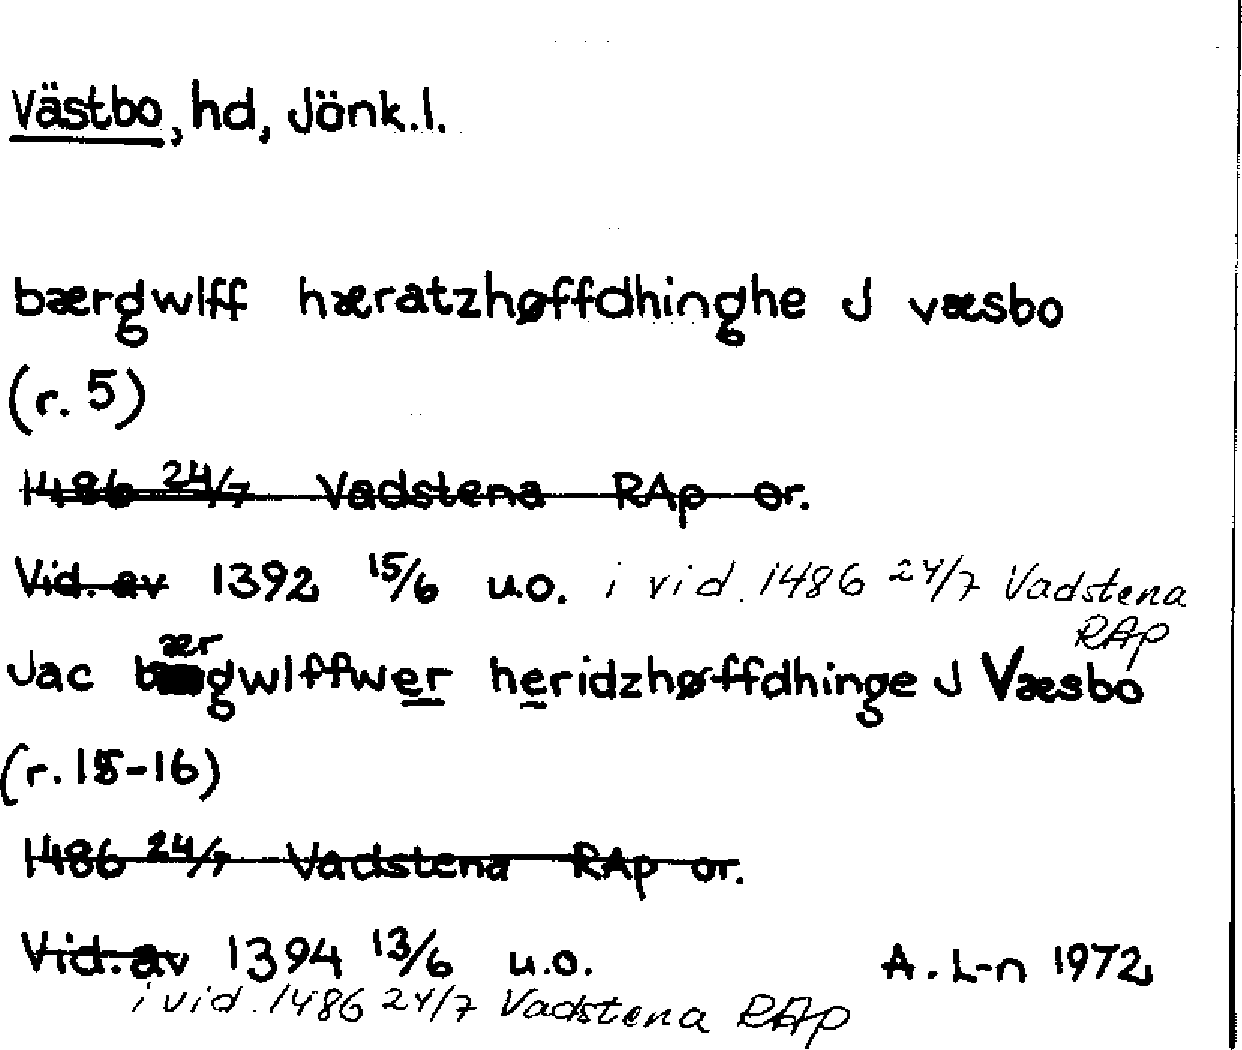 Västbo, hd, Jönk.l.
bærgwlff hæratzhøffdhinghe J væsbo
(r. 5)
1486 24/7 Vadstena RAp or.
Vid. av 1392 15/6 u.o. i vid. 1486 24/7 Vadstena
RAp
Jac bærgwlffwer heridzhøffdhinge J Væsbo
(r. 15-16)
1486 24/7 Vadstena RAp or.
Vid. av 1394 13/6 u.o. A. L-n 1972
i vid. 1486 24/7 Vadstena RAp